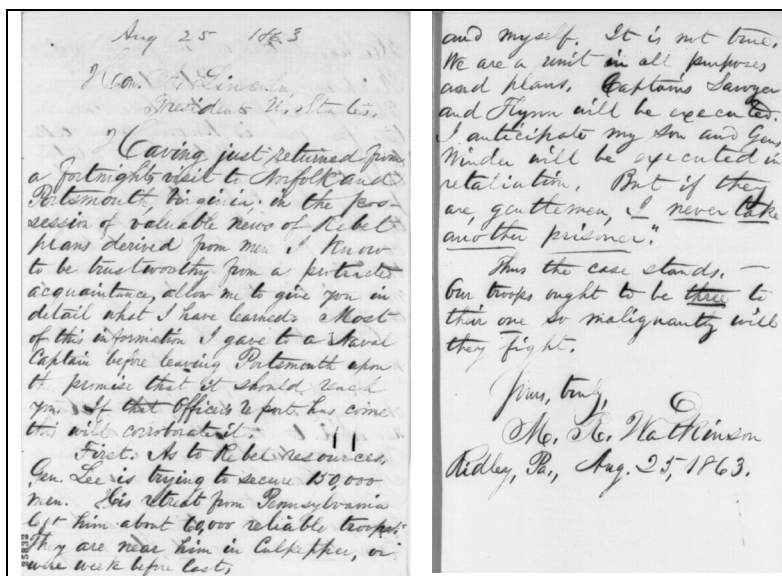 Aug 25 1863
Hon. A. Lincoln,
President U. States.
Having just returned from
a fortnights visit to Norfolk and
Portsmouth, Virginia, in the pos-
session of valuable news of Rebel
plans derived from men I know
to be trustworthy from a protracted
acquaintance, allow me to give you in
detail what I have learned. Most
of this information I gave to a Naval
Captain before leaving Portsmouth upon
the promise that it should reach
you. If that Officers report has come
this will corroborate it.
First: As to Rebel resources,
Gen. Lee is trying to secure 150,000
men. His retreat from Pennsylvania
left him about 60,000 reliable troops.
They are near him in Culpepper, or
were week before last,
25832
and myself. It is not true.
We are a unit in all purposes
and plans. Captains Sawyer
and Flynn will be executed.
I anticipate my Son and Gen
Winder will be executed in
retaliation. But if they
are, gentlemen, I never take
another prisoner."
Thus the case stands. —
Our troops ought to be three to
their one so malignantly will
they fight.
Yours, truly,
M. R. Watkinson
Ridley, Pa., Aug. 25, 1863.